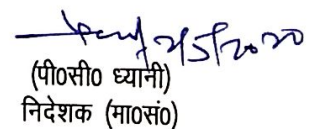 2/5/2020
(पी0सी0 ध्यानी)
निदेशक (मा0सं0)